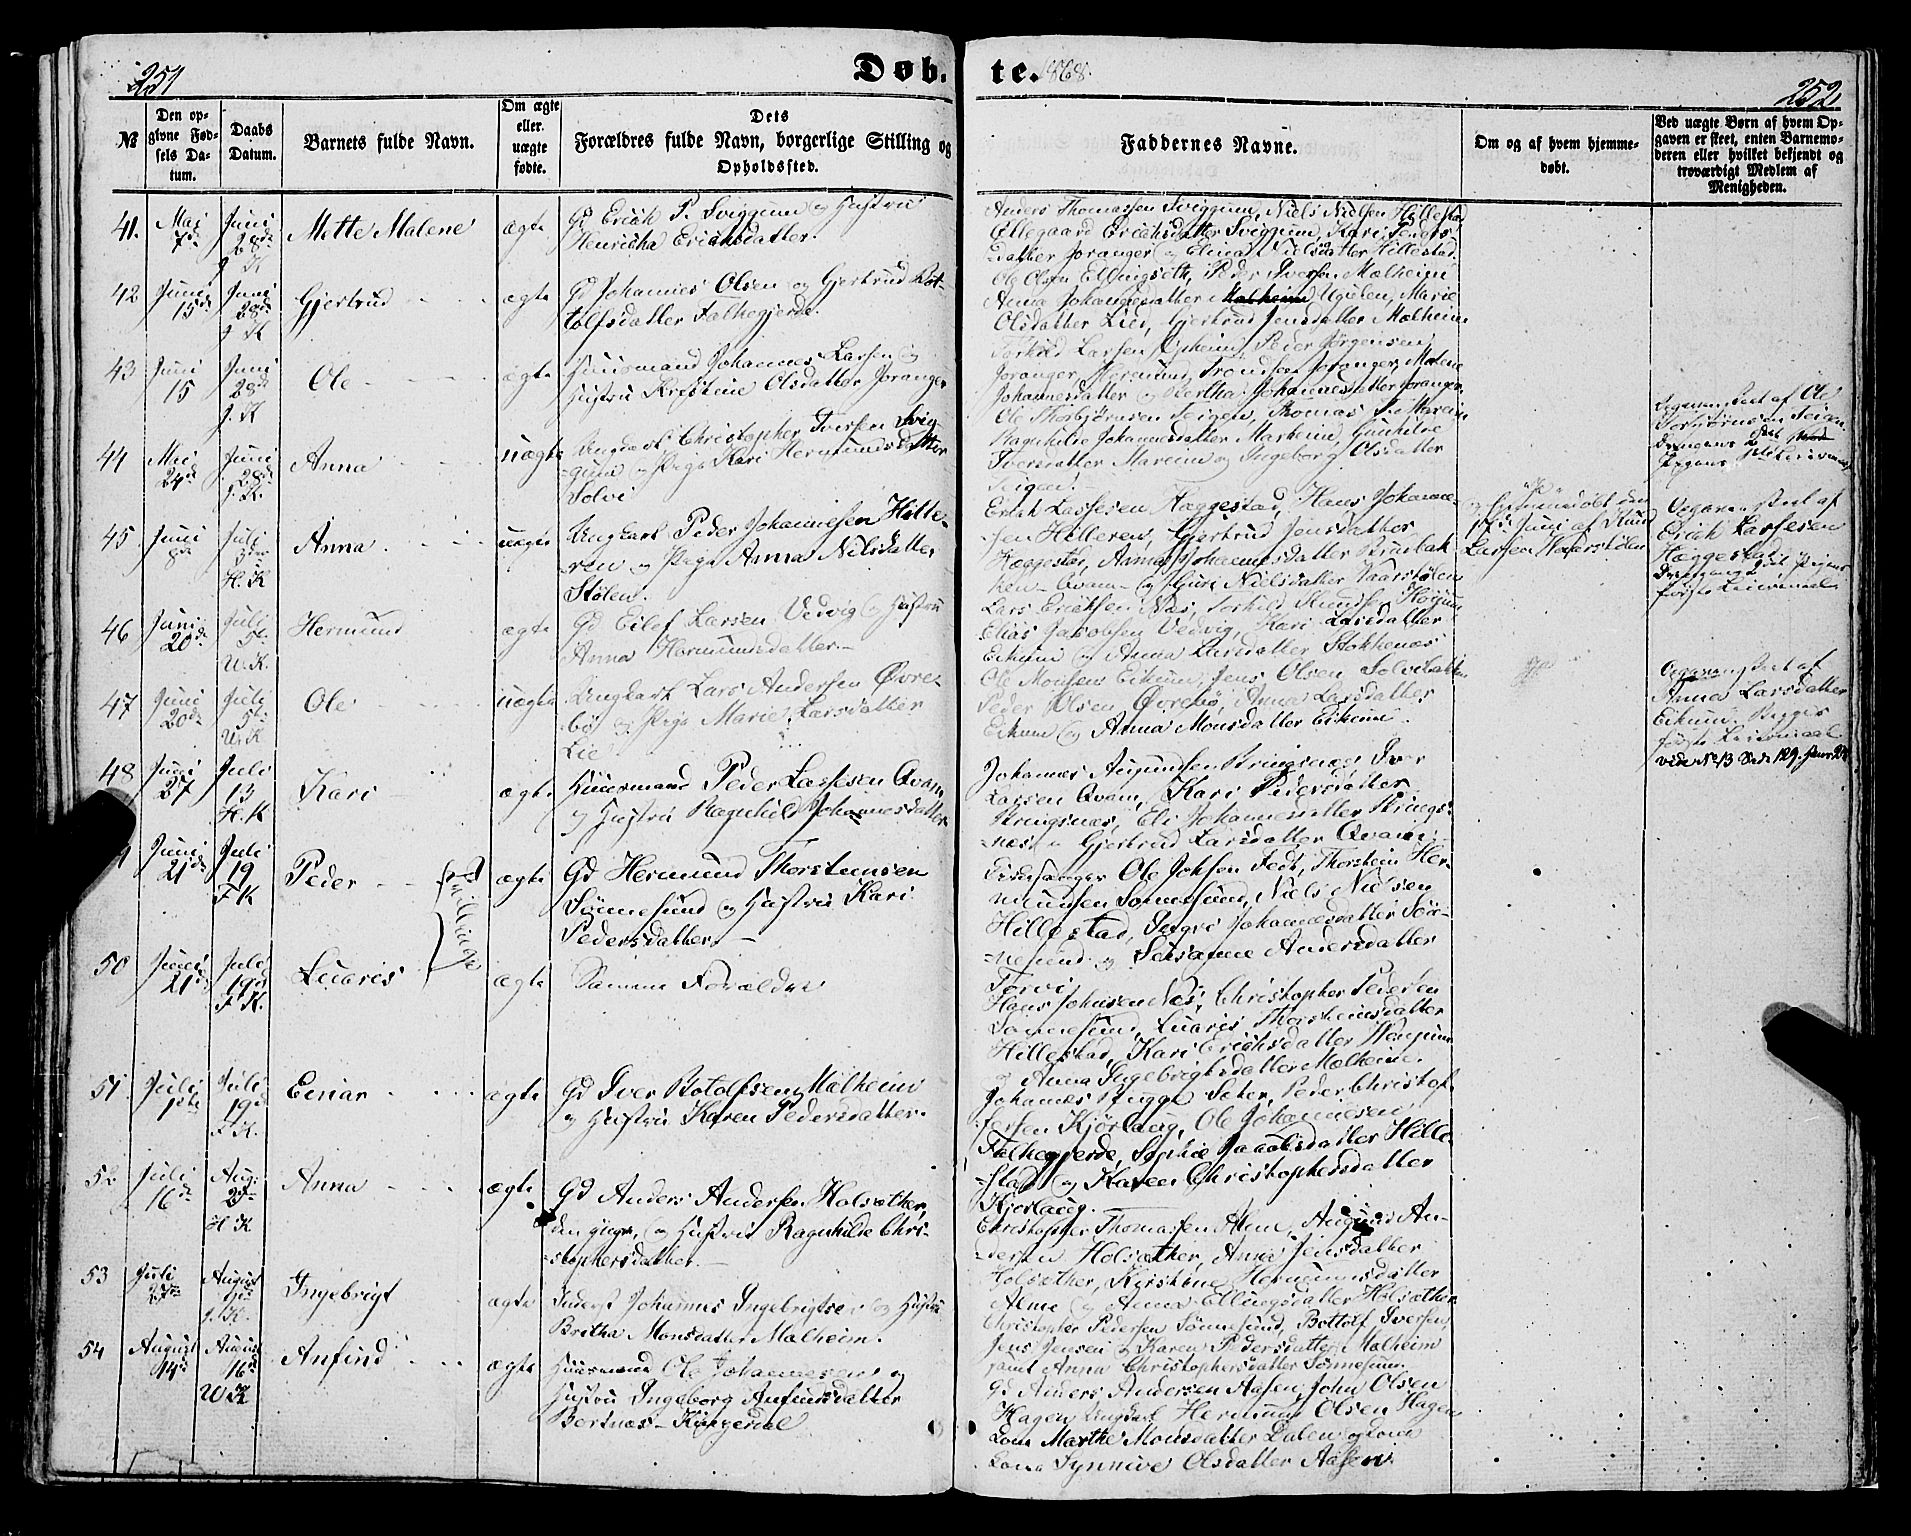 251
Døb.
te. 1868.
252
№
Den op-
givne Fød-
sels Da-
tum.
Daabs
Datum.
Barnets fulde Navn.
Om ægte
eller
uægte
fødte.
Dets
Forældres fulde Navn, borgerlige Stilling og
Opholdssted.
Faddernes Navne.
Om og af hvem hjemme-
døbt.
Ved uægte Børn af hvem Op-
gaven er skeet, enten Barnemo-
deren eller hvilket bekjendt og
troværdigt Medlem af
Menigheden.
41.
Mai
7de
Juni
28de
J. K
Mette Malene
ægte
Gd Erich P. Sviggum og Hustru
Henricha Erichsdatter.
Anders Thomassen Sviggum, Niels Nielsen Hillestad
Ellegaard Erichsdatter Sviggum, Kari Peders-
datter Joranger og Elina Nielsdatter Hillestad.
42
Juni
15de
Juni
28de
J. K
Gjertrud
ægte
Gd Johannes Olsen og Gjertrud Bot-
tolfsdatter Falkegjerde.
Ole Olsen Ellingseth, Peder Iversen Mælheim
Anna Johannesdatter Malheim Ugulen, Marie
Olsdatter Lied, Gjertrud Jensdatter Mælheim
43
Juni
15
Juni
28de
J. K
Ole
ægte
Huusmand Johannes Larsen og
Hustru Kristine Olsdatter Joranger
Torkild Larsen Opheim, Peder Jørgensen
Joranger, Trondsen Joranger, Malene
Johannesdatter og Bertha Johannesdatter Joranger
44
Mai
24de
Juni
28de
J. K.
Anna
uægte
Ungkarl Christopher Iversen Svig-
gum og Pige Kari Hermundsdatter
Solvi
Ole Thorbjørnsen Seigen, Thomas P. Mareim
Ragnhilde Johannesdatter Marheim, Gunhilde
Iversdatter Mareim og Ingeborg Olsdatter
Seigen.
Opgaven skeet af Ole
Torbjørnsen Seigen
Drengens 2det
Pigens
45
Juni
8de
Juli
H. K
Anna
uægte
Ungkarl Peder Johannesen Hille-
ren og Pige Anna Nilsdatter
Stølen.
Erich Lassesen Hæggestad, Hans Johanne-
sen Hilleren, Gjertrud Jensdatter
Hæggestad, Anna Johannesdatter Bruebak-
ken Qvam og Guri Nielsdatter Vaarstølen
hjemmedøbt den
17de Juni af Knud
Larsen Waarstølen
Opgaven skeet af
Erich Lassesen
Hæggestad
Drengens 2det Pigens
første Leiermaal
46
Juni
20de
Juli
5te
U. K.
Hermund
ægte
Gd Eilef Larsen Vedvig og Hustru
Anna Hermundsdatter
Lars Eriksen Næs, Torkild Knudsen Høyum
Elias Jacobsen Vedvig, Kari Larsdatter
Eikum og Anna Larsdatter Stokkenæs
47
Juni
20de
Juli
5te
U. K
Ole
uægte
Ungkarl Lars Andersen Øvre-
bø og Pige Marie Larsdatter
Lie
Ole Monsen Eikum, Jens Olsen Solvibakken
Peder Olsen Øvrebø, Anna Larsdatter
Eikum og Anna Monsdatter Eikum.
Opgaven skeet af
Anna Larsdatter
Eikum. Begges
første Leiermaal
vide No 13 Side 129.
48
Juni
27
Juli
13
H. K
Kari
ægte
Huusmand Peder Lassesen Qvam
og Hustru Ragnhild Johannesdatter
Johannes Augundsen Kringsnæs, Iver
Larsen Qvam, Kari Pedersdatter
Kringsnæs, Eli Johannesdatter Krings-
næs og Gjertrud Larsdatter Qvam.
Juni
21de
Juli
19
F K
Peder
Tvillinger
ægte
Gd Hermund Thorsteinsen
Sønnesund og Hustru Kari
Pedersdatter.
Ole Johsen Fedt, Thorstein Her-
mundsen Sønnesund, Niels Nielsen
Hillestad, Ingri Johannesdatter Søn-
nesund og Susanne Andersdatter
Torvi
50
Juni
21de
Juli
19de
F. K.
Luaris
ægte
Samme Forældre
Hans Johnsen Næs, Christopher Pedersen
Sønnesund, Luaris Thorsteinsdatter
Hillestad, Kari Erichsdatter
og Anna Ingebrigtsdatter Mælheim.
51
Juli
1ste
Juli
19de
F. K.
Einar
ægte
Gd Iver Botolfsen Mælheim
og Hustru Karen Pedersdatter.
Johannes Bugge Seter, Peder Christof-
fersen Kjørlaug, Ole Johannesen
Falkegjerde, Sophie Jacobsdatter Hille-
stad og Karen Christophersdatter
Kjørlaug.
52
Juli
16de
Aug:
2den
H. K
Anna
ægte
Gd Anders Andersen Holsæther,
den yngre, og Hustru Ragnhilde Chri-
stophersdatter.
Christopher Thomassen Alme, Augund An-
dersen Holsæther, Anna Jensdatter
Holsæther, Kirstine Hermundsdatter
Alme og Anna Ellingsdatter Holsæther
53
Juli
August
J. K.
Ingebrigt
ægte
Inderst Johannes Ingebrigtsen og Hustru
Britha Monsdatter Malheim.
Christopher Pedersen Sønnesund, Bottolf Iversen,
Jens Jensen og Karen Pedersdatter Malheim
samt Anna Christophersdatter Sønnesund.
54
August
14de
August
16de
U. K
Anfind
ægte
Huusmand Ole Johannesen og
Hustru Ingeborg Anfindsdatter
Bertnæs-
Gd Anders Andersen Aasen, John Olsen
Hagen Ungkarl Hermund Olsen Hagen
Kone Marthe Monsdatter Dalen og
Kone Synneve Olsdatter Aasen.